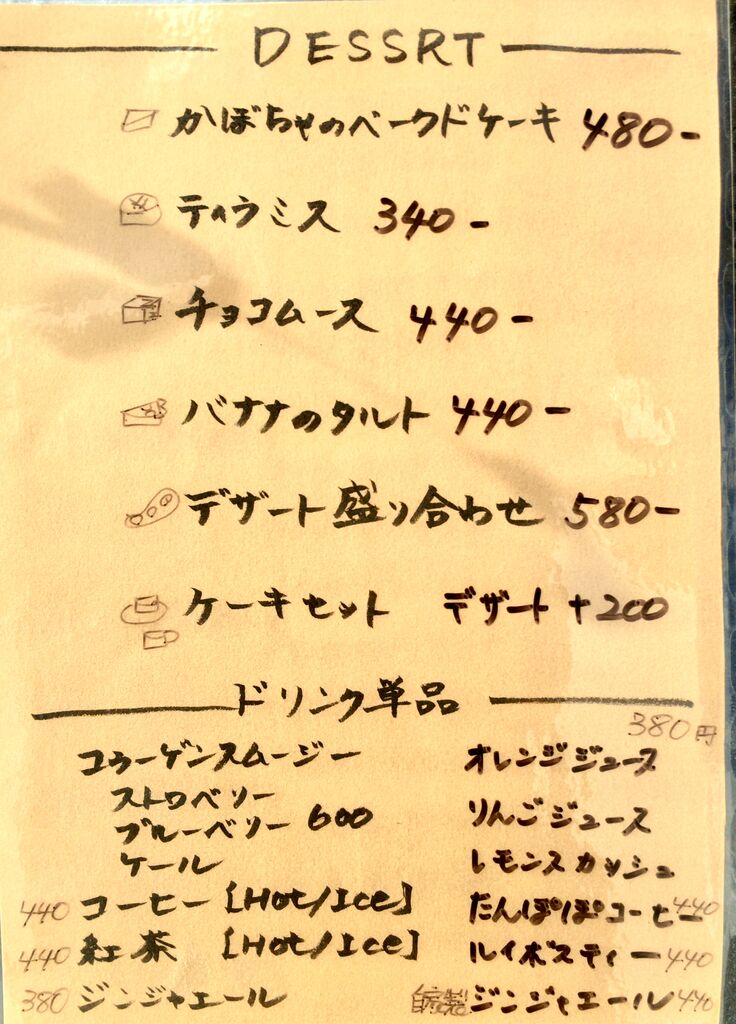 DESSRT
かぼちゃのベークドケーキ 480-
ティラミス 340-
チョコムース 440-
バナナのタルト 440-
デザート盛り合わせ 580-
ケーキセット デザート +200
ドリンク単品
380円
コラーゲンスムージー
ストロベリー
ブルーベリー 600
ケール
440 コーヒー [Hot/Ice]
440 紅茶 [Hot/Ice]
380 ジンジャエール
オレンジジュース
りんごジュース
レモンスカッシュ
たんぽぽコーヒー 440
ルイボスティー 440
自家製ジンジャエール 440